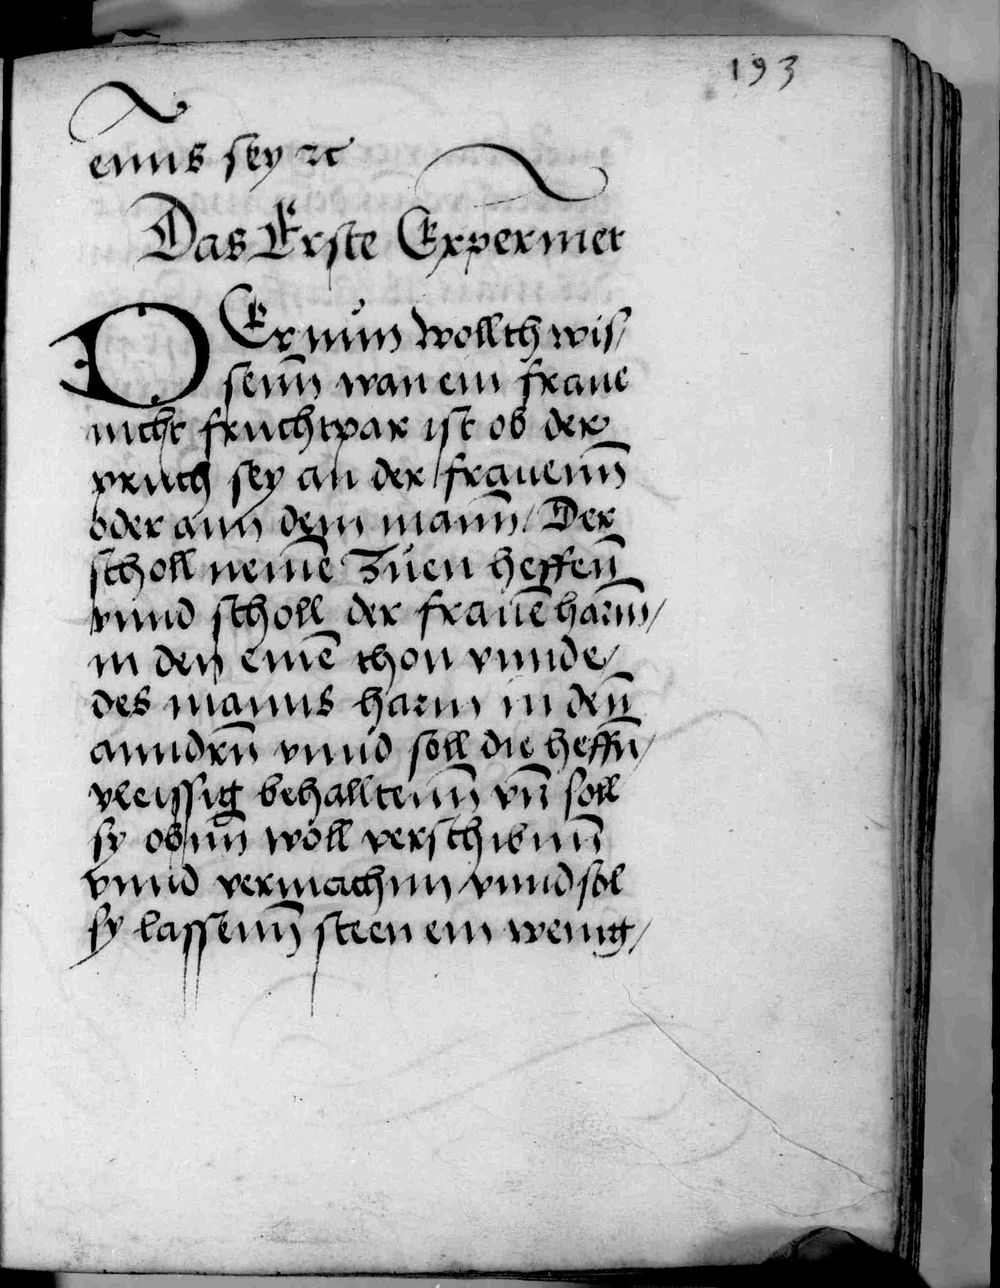 193
enns sey ⁊c
Das Erste Experimet
DEr nun wollth wis/
senn̄ wan ein fraue
nicht fruchtpar ist ob der
pruch sey an der frauenn̄
oder ann dem mann̄/ Der
scholl neme͂ zuen heffen̄
vnnd scholl der fraue͂ harm̄/
in den eine͂ thon vnnde/
des manns harm in den̄
anndrn̄ vnnd soll die heffn̄/
vleissig behalltenn̄ vn̄ soll
sy obnn̄ woll verschibnn̄
vnnd vermachnn/ vnnd sol
sy lassenn̄ steen ein wenig/